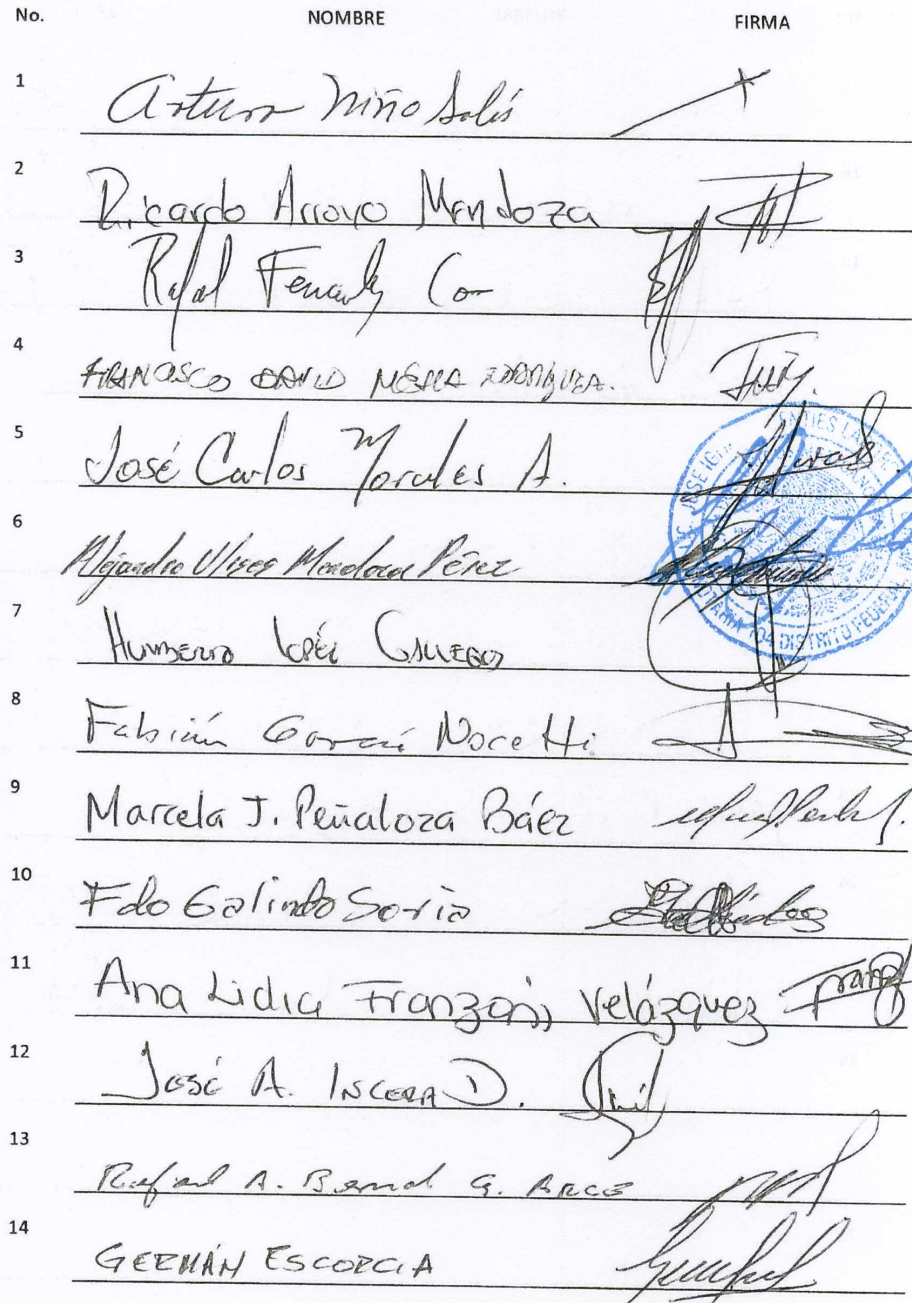 No. NOMBRE FIRMA
1 Arturo Niño Solís
2 Ricardo Arroyo Mendoza
3 Rafael Fernández
4 FRANCISCO DAVID MEJÍA
5 José Carlos Morales A.
6 Alejandro Ulises Mendoza Pérez
7 HUMBERTO LÓPEZ GALLEGOS
8 Fabián García Nocetti
9 Marcela J. Peñaloza Báez
10 Fdo Galindo Soria
11 Ana Lidia Franzoni Velázquez
12 José A. INCERA D.
13 Rafael A. Bernal G. ARCE
14 GERMÁN ESCORCIA
DISTRITO FEDERAL